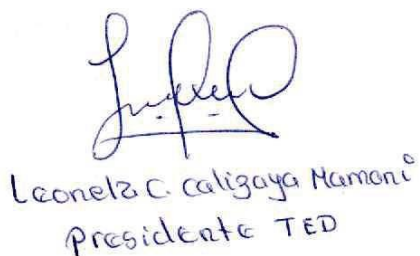 Leonela C. Calizaya Mamani
Presidente TED